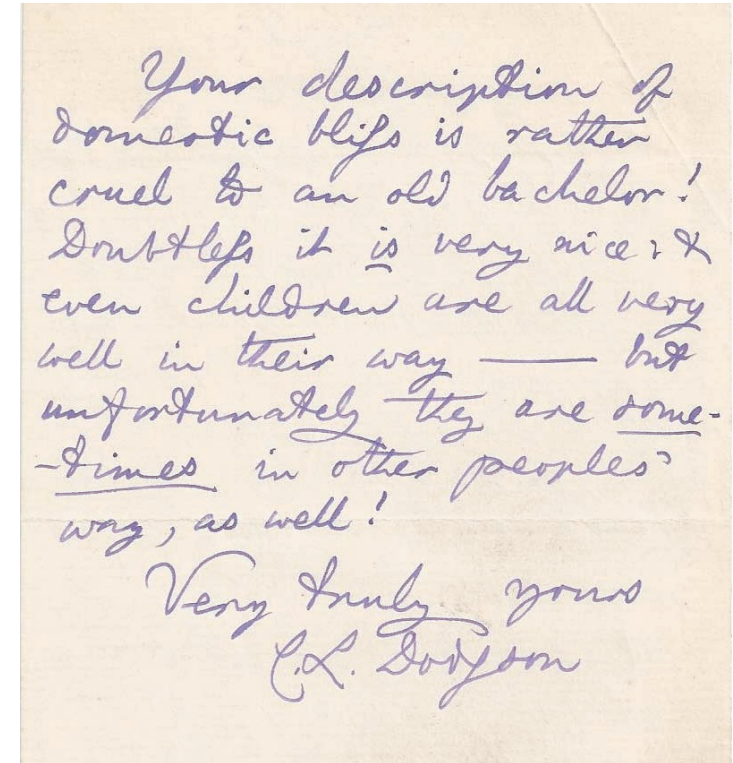 Your description of
domestic bliſs is rather
cruel to an old bachelor!
Doubtleſs it is very nice: &
even children are all very
well in their way —— but
unfortunately they are some-
-times in other peoples'
way, as well!
Very truly yours
C. L. Dodgson